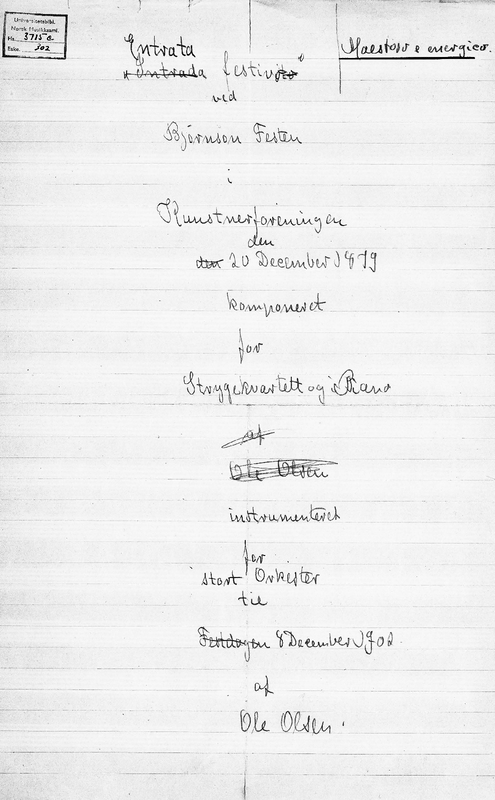 Universitetsbibl.
Norsk Musikksaml.
Ms. 3715 a
Eske. 302
Maestoso e energico.
Entrata
"Entrada festivoso"
ved
Bjørnson Festen
i
Kunstnerforeningen
den
den 20 December 1879
komponeret
for
Strygekvartett og Piano
af
Ole Olsen
instrumenteret
for
stort Orkester
til
Festdagen 8 December 1902
af
Ole Olsen.